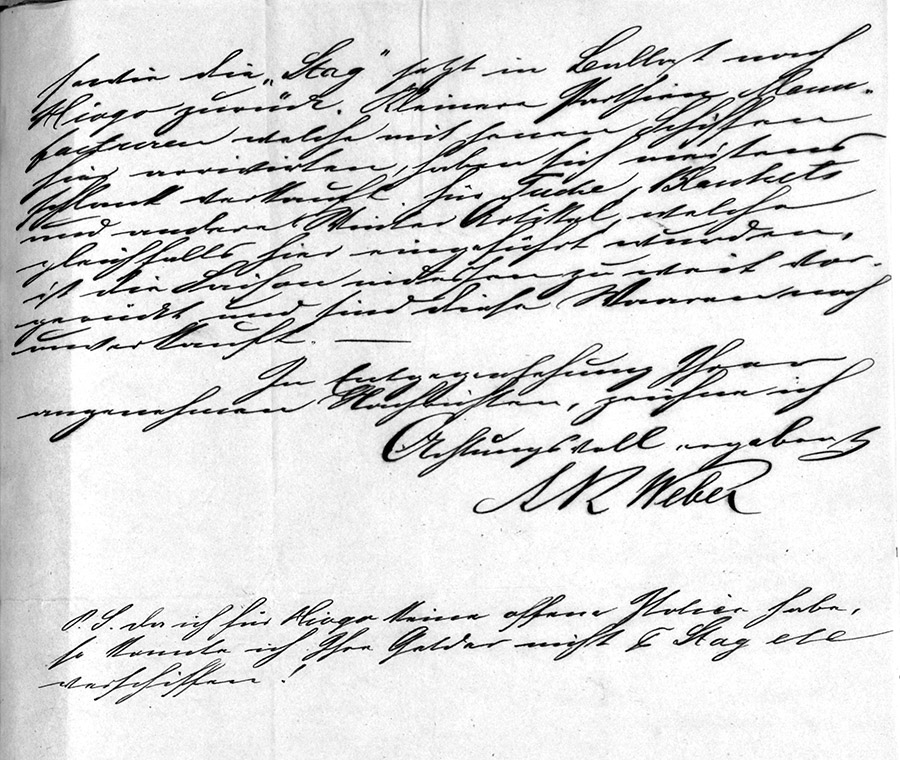 sowie die „Stag“ jetzt in Ballast nach
Hiogo zurück. Kleinere Parthien Manu-
facturen welche mit jenen Schiffen
hier arrivirten, haben sich meistens
schlank verkauft für Tuche, Blankets
und andere Winter Artikel, welche
gleichfalls hier eingeführt wurden,
ist die Saison indessen zu weit vor-
gerückt und sind diese Waaren noch
unverkauft. —
In Entgegensehung Ihrer
angenehmen Nachrichten, zeichne ich
Achtungsvoll ergebenst
A R Weber
P. S. da ich für Hiogo keine offene Police habe,
so konnte ich Ihre Gelder nicht Stag etc
verschiffen!